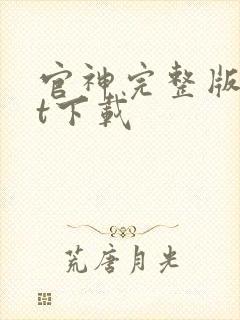 官神完整版
t下载
荒唐月光